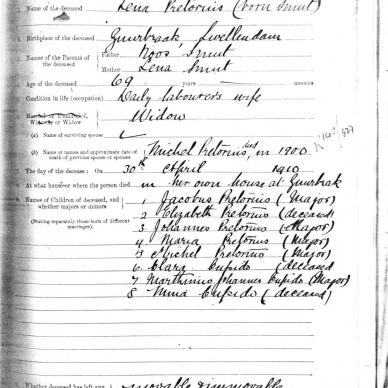 1. Name of the deceased Lena Pretorius (born Smut)
2. Birthplace of the deceased Zuurbraak Swellendam
3. Names of the Parents of the deceased Father Roos Smut
Mother Lena Smut
Age of the deceased 69 years months
Condition in life (occupation) Daily labourers wife
Married or Unmarried, Widower or Widow Widow
(a) Name of surviving spouse
(b) Name or names and approximate date of death of previous spouse or spouses Michel Pretorius died in 1900
The day of the decease : On 30th April 1910
At what house or where the person died in her own house at Zuurbrak
Names of Children of deceased, and whether majors or minors
(Stating separately those born of different marriages.)
1 Jacobus Pretorius (Major)
2 Elizabeth Pretorius (deceased)
3 Johannes Pretorius (Major)
4 Maria Pretorius (Major)
5 Michel Pretorius (Major)
6. Clara Cupido (deceased
7 Marthinus Johannes Cupido (Major)
8 Mina Cupido (deceased)
Whether deceased has left any movable & immovable